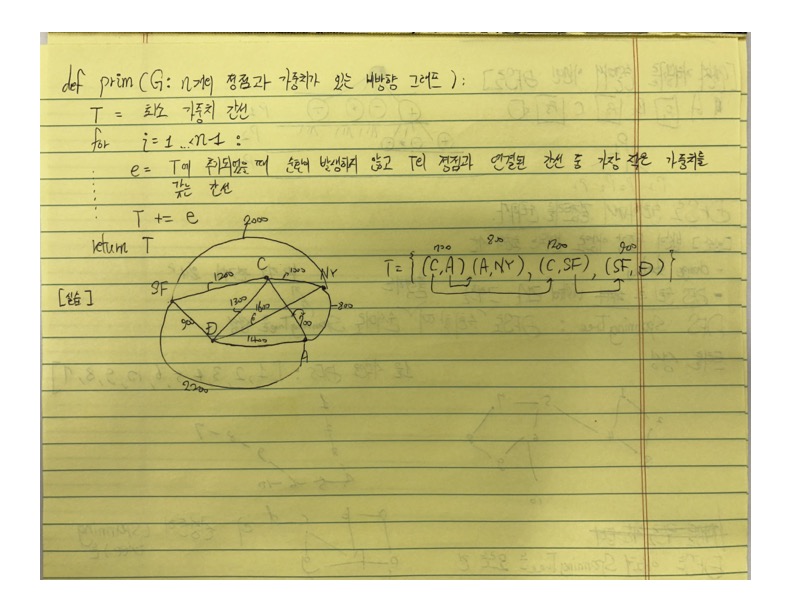 def prim(G: n개의 정점과 가중치가 있는 비방향 그래프):
T = 최소 가중치 간선
for i=1...n-1 :
e= T에 추가되었을 때 순환이 발생하지 않고 T의 정점과 연결된 간선 중 가장 작은 가중치를
갖는 간선
T += e
return T
2000
700 800 1200 900
T={(C,A)(A,NY),(C,SF),(SF,D)}
[실습]
SF 1200 C 1000 NY
1300 1600 800
900 D 700
1400 A
2200